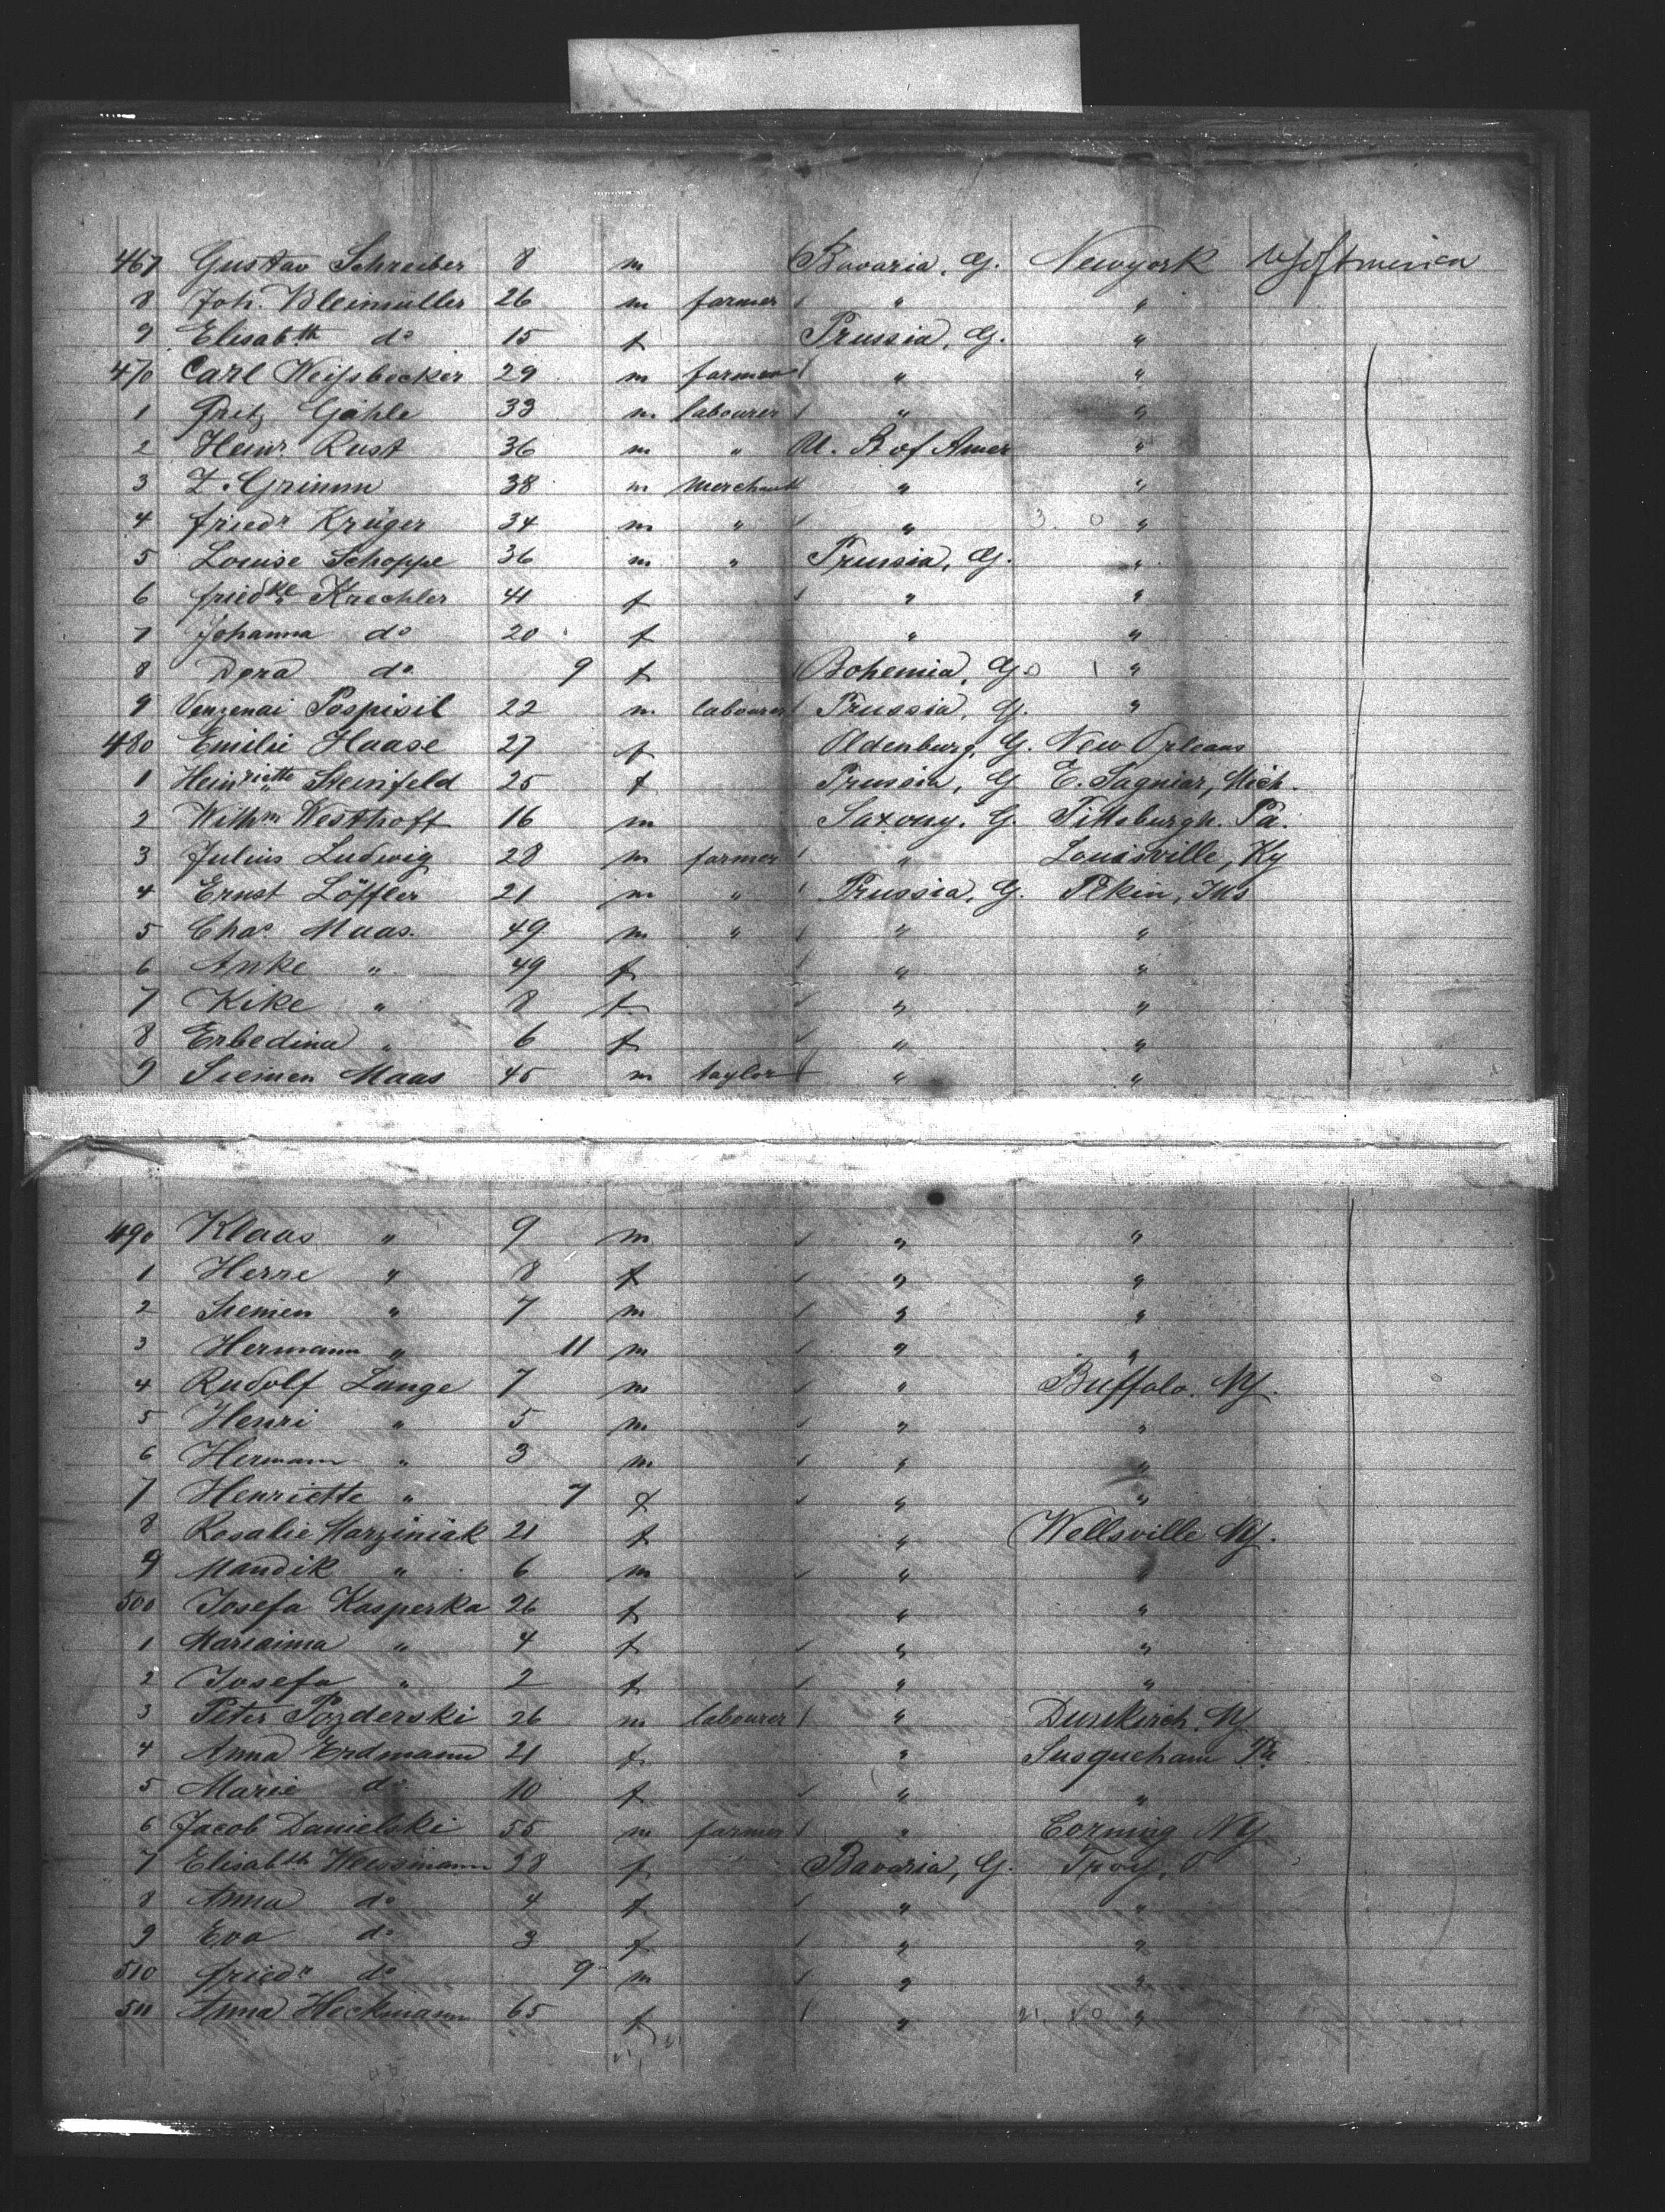 467 Gustav Schreiber 8 m Bavaria, G. Newyork
8 Joh. Bleimüller 26 m farmer " "
9 Elisabth do 15 f Prussia, G. "
470 Carl Weissbecker 29 m farmer " "
1 Fritz Gähle 33 m labourer " "
2 Heinr. Rust 36 m " U. St of Amer "
3 Z. Grimm 38 m Merchant " "
4 Friedr Krüger 34 m " " "
5 Louise Schoppe 36 m " Prussia, G. "
6 Friedke Krechler 41 f " "
7 Johanna do 20 f " "
8 Dora do 9 f Bohemia, G. "
9 Venzenai Pospisil 22 m labourer Prussia, G. "
480 Emilie Haase 27 f Oldenburg, G. New Orleans
1 Heinriette Steinfeld 25 f Prussia, G E. Saginar, Mich.
2 Wilhm Westhoff 16 m Saxony, G. Pittsburgh. Pa.
3 Julius Ludwig 28 m farmer " Louisville, Ky
4 Ernst Löffler 21 m " Prussia, G. Pekin, Ills
5 Chas. Maas. 49 m " " "
6 Anke " 49 f " "
7 Kike " 8 f " "
8 Erbedina " 6 f " "
9 Siemen Maas 45 m taylor " "
490 Klaas " 9 m " "
1 Herre " 8 f " "
2 Siemen " 7 m " "
3 Hermann " 11 m " "
4 Rudolf Lange 7 m " Buffalo. NY.
5 Henri " 5 m " "
6 Hermann " 3 m " "
7 Henriette " 7 f " "
8 Rosalie Marziniak 21 f " Wellsville NY.
9 Mandik " 6 m " "
500 Josefa Kasperka 26 f " "
1 Mariaima " 4 f " "
2 Josefa " 2 f " "
3 Peter Pozderski 26 m labourer " Dunkirch. NY
4 Anna Erdmann 21 f " Susqueham Pa
5 Marie do 10 f " "
6 Jacob Danielski 55 m farmer " Corning NY
7 Elisabth Heussmann 28 f Bavaria, G. Troy, O
8 Anna do 4 f " "
9 Eva do 3 f " "
510 Friedr do 9 m " "
511 Anna Heckmann 65 f " "